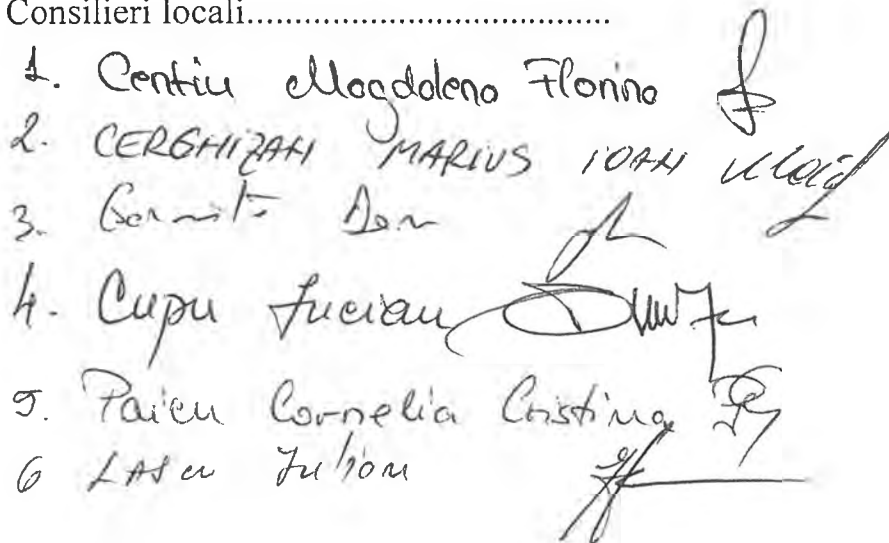 Consilieri locali......................................
1. Centiu Magdalena Florina
2. CERGHIZAN MARIUS IOAN
3. Dan
4. Cupu Lucian
5. Paicu Cornelia Cristina
6 LASCU Iulian